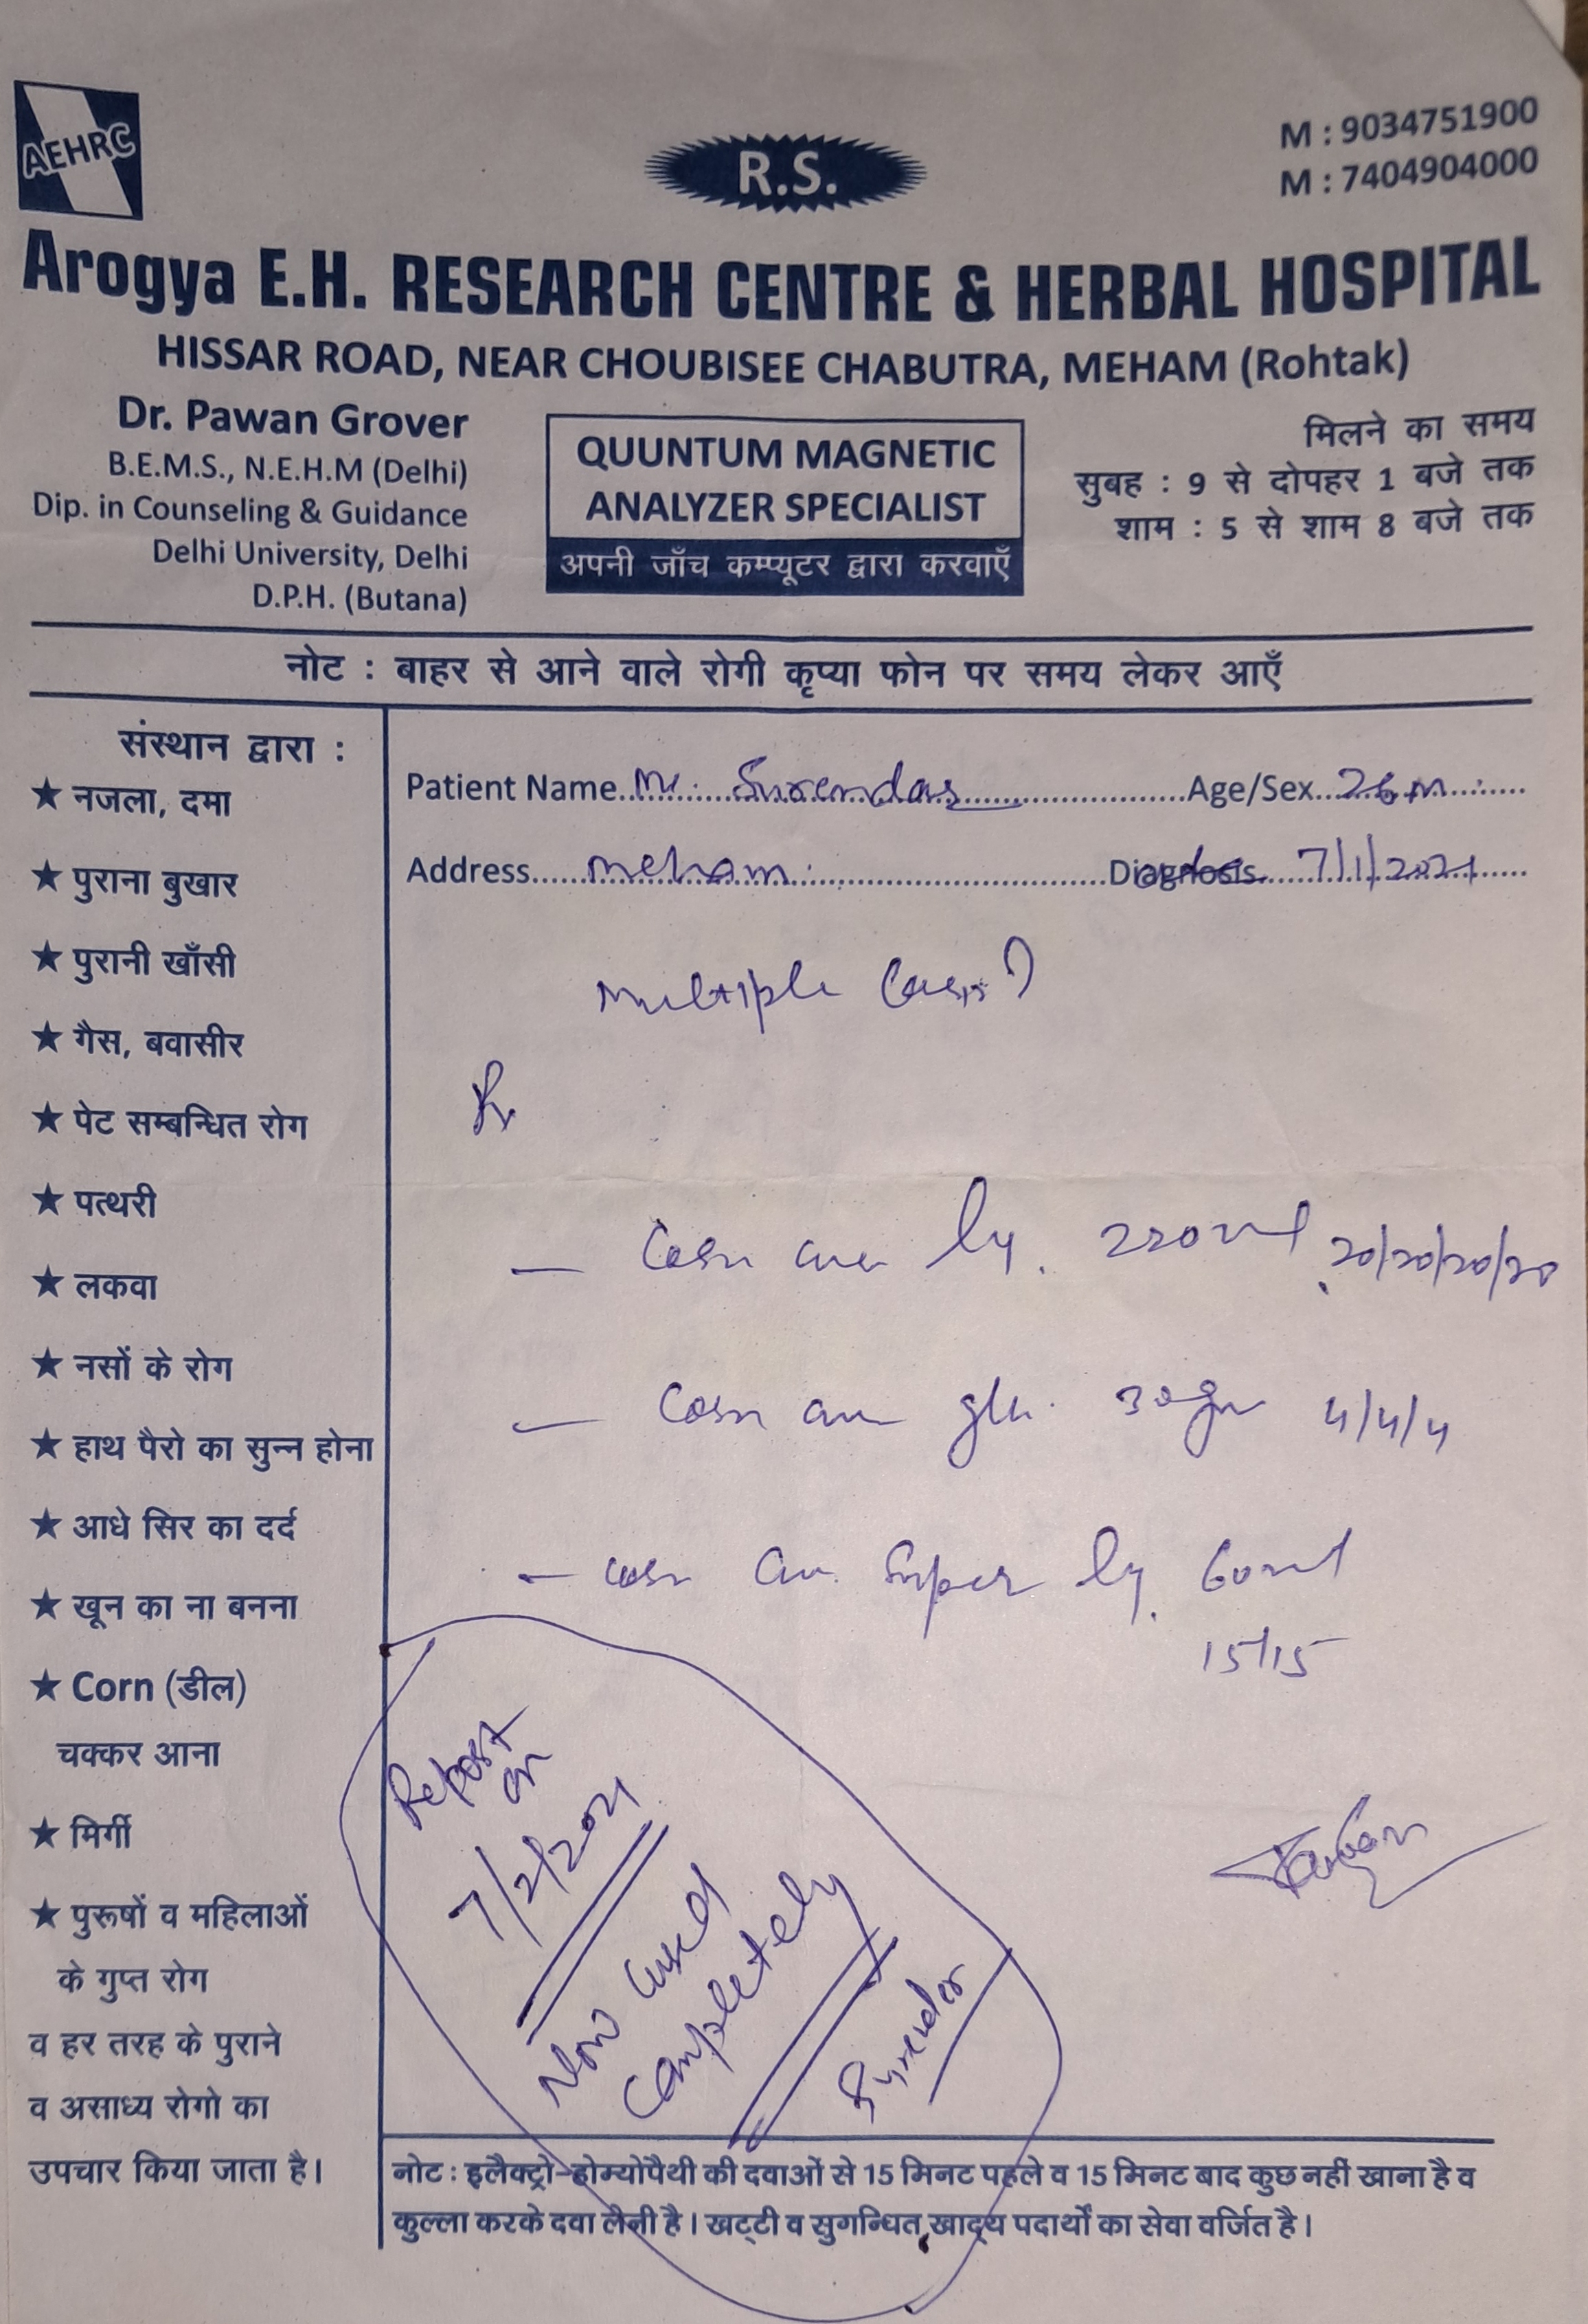 AEHRC
R.S.
M : 9034751900
M : 7404904000
Arogya E.H. RESEARCH CENTRE & HERBAL HOSPITAL
HISSAR ROAD, NEAR CHOUBISEE CHABUTRA, MEHAM (Rohtak)
Dr. Pawan Grover
B.E.M.S., N.E.H.M (Delhi)
Dip. in Counseling & Guidance
Delhi University, Delhi
D.P.H. (Butana)
QUUNTUM MAGNETIC
ANALYZER SPECIALIST
अपनी जाँच कम्प्यूटर द्वारा करवाएँ
मिलने का समय
सुबह : 9 से दोपहर 1 बजे तक
शाम : 5 से शाम 8 बजे तक
नोट : बाहर से आने वाले रोगी कृप्या फोन पर समय लेकर आएँ
संस्थान द्वारा :
★ नजला, दमा
★ पुराना बुखार
★ पुरानी खाँसी
★ गैस, बवासीर
★ पेट सम्बन्धित रोग
★ पत्थरी
★ लकवा
★ नसों के रोग
★ हाथ पैरो का सुन्न होना
★ आधे सिर का दर्द
★ खून का ना बनना
★ Corn (डील)
चक्कर आना
★ मिर्गी
★ पुरूषों व महिलाओं
के गुप्त रोग
व हर तरह के पुराने
व असाध्य रोगो का
उपचार किया जाता है।
Patient Name Mr. Surender Age/Sex 26 m
Address Meham Diagnosis 7/1/2021
Multiple
Rx
- Corn ly. 220ml 20/20/20/20
- Corn 30gm 4/4/4
- Corn Super ly. 60ml
15/15
Report
on
7/2/2021
Now Cured
Completely
Surender
Pawan
नोट : इलैक्ट्रो-होम्योपैथी की दवाओं से 15 मिनट पहले व 15 मिनट बाद कुछ नहीं खाना है व
कुल्ला करके दवा लेनी है। खट्टी व सुगन्धित खाद्य पदार्थों का सेवा वर्जित है।